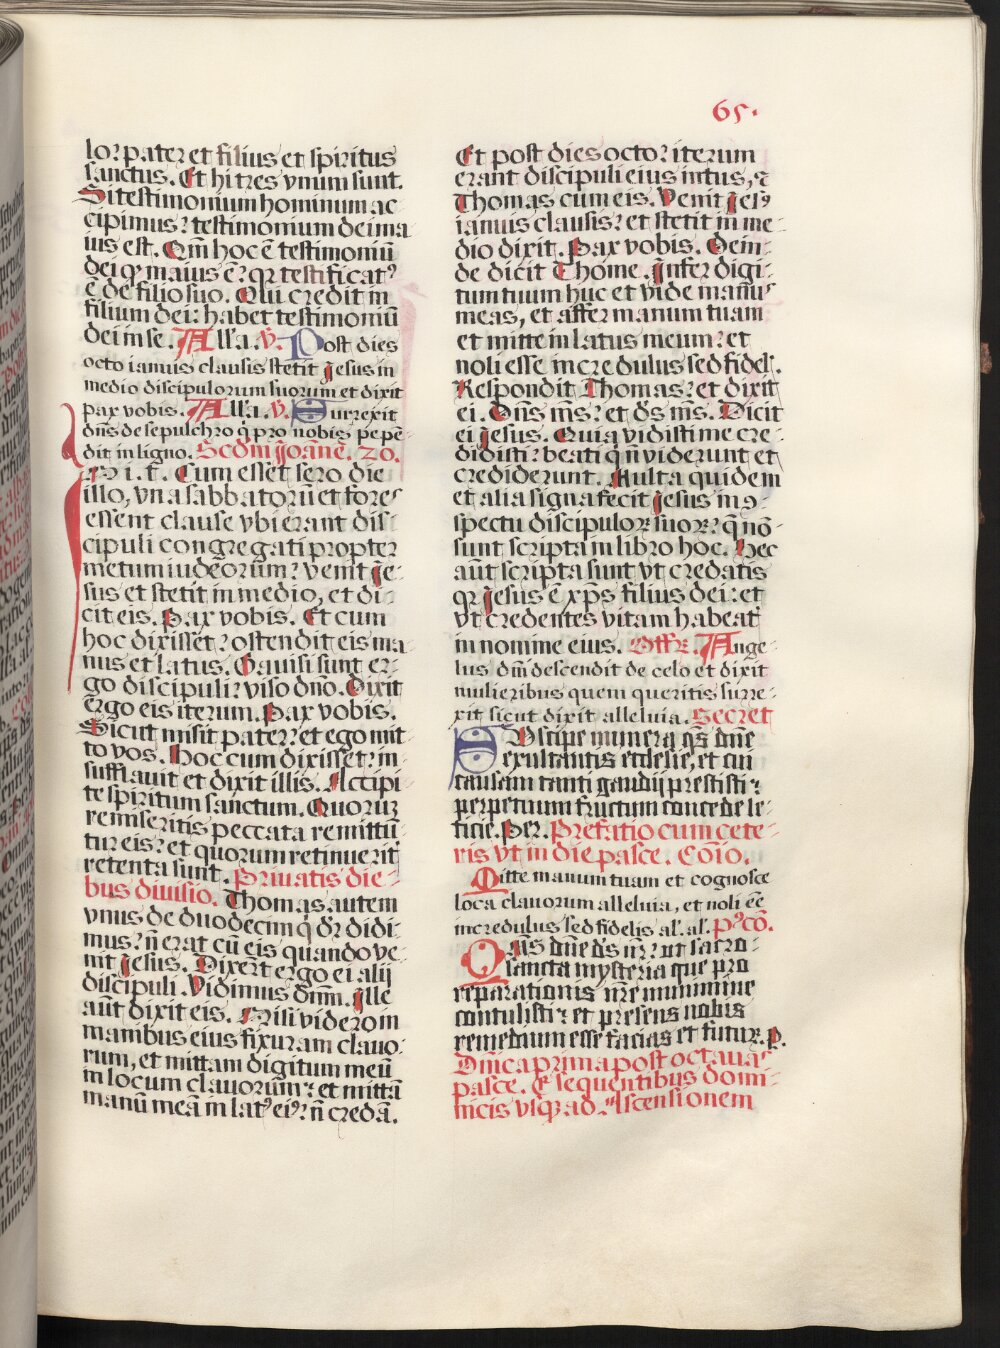 65.
lor pater et filius et spiritus
sanctus. Et hi tres vnum sunt.
Si testimonium hominum ac
cipimus: testimonium dei ma
ius est. Qm̄ hoc ē testimoniū
dei qꝫ maius ē: qꝛ testificatꝰ
ē de filio suo. Qui credit in
filium dei: habet testimoniū
dei in se. All'a. ℣. Post dies
octo ianuis clausis stetit Jesus in
medio discipulorum suorum et dixit
pax vobis. Alla. ℣. Surrexit
dn̄s de sepulchro q̇ pro nobis pepē
dit in ligno. Scdm̄ Joānē. 20.
I. i. t. Cum esset sero die
illo, vna sabbatorū et fores
essent clause vbi erant dis-
cipuli congregati propter
metum iudeorum: venit Je-
sus et stetit in medio, et di-
cit eis. Pax vobis. Et cum
hoc dixisset: ostendit eis ma-
nus et latus. Gauisi sunt er-
go discipuli: viso dn̄o. Dixit
ergo eis iterum. Pax vobis.
Sicut misit pater: et ego mit
to vos. Hoc cum dixisset: in-
sufflauit et dixit illis. Accipi
te spiritum sanctum. Quorum
remiseritis peccata remittū
tur eis: et quorum retinuerit
retenta sunt. Priuatis die-
bus diuisio. Thomas autem
vnus de duodecim q̇ dr̄ didi-
mus: n̄ erat cū eis quando ve-
nit Jesus. Dixerūt ergo ei alij
discipuli. Vidimus dn̄m. Ille
aūt dixit eis. Nisi videro in
manibus eius fixuram clauo-
rum, et mittam digitum meū
in locum clauorum: et mittā
manū meā in latꝰ eiꝰ: n̄ credā.
Et post dies octo: iterum
erant discipuli eius intus, ⁊
Thomas cum eis. Venit Jesꝰ
ianuis clausis: et stetit in me-
dio dixit. Pax vobis. Dein-
de dicit Thome. Infer digi-
tum tuum huc et vide manus
meas, et affer manum tuam
et mitte in latus meum: et
noli esse incredulus sed fidel̓.
Respondit Thomas: et dixit
ei. Dn̄s m̄s: et d̄s m̄s. Dicit
ei Jesus. Quia vidisti me cre-
didisti: beati q̇ n̄ viderunt et
crediderunt. Multa quidem
et alia signa fecit Jesus in ꝯ
spectu discipuloꝝ suoꝝ: q̄ nō
sunt scripta in libro hoc. Hec
aūt scripta sunt vt credatis
qꝛ Jesus ē xp̄s filius dei: et
vt credentes vitam habeat
in nomine eius. Offr̄. Ange-
lus dn̄i descendit de celo et dixit
mulieribus quem queritis surre-
xit sicut dixit alleluia. Secret
Suscipe munera qs̄ dn̄e
exultantis ecclesie, et cui
causam tanti gaudij prestisti:
perpetuum fructum concede le-
ticie. Per. Prefatio cum cete-
ris vt in die pasce. Cōio.
Mitte manum tuam et cognosce
loca clauorum alleluia, et noli eē
incredulus sed fidelis al'. al'. Pꝰcō.
Qs̄s dn̄e d̄s n̄r: ut sacro-
sancta mysteria que pro
reparationis nr̄e munimine
contulisti: et presens nobis
remedium esse facias et futuꝝ. P.
Dn̄ica prima post octauas
pasce. & sequentibus domi-
nicis vsqꝫ ad Ascensionem